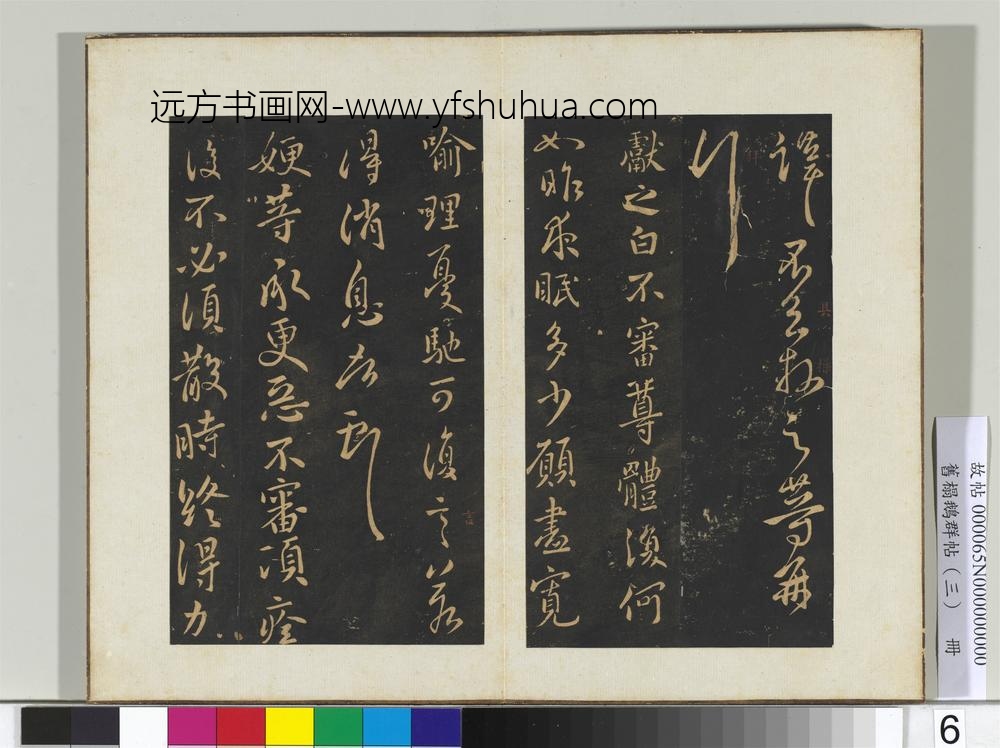 远方书画网-www.yfshuhua.com
不具之等再
獻之白不審尊體復何
如昨來眠多少願盡寬
喻理憂馳可復言若
得消息
等承更惡不審項痊
復不必須散時終得力
故帖 000065N000000000
舊榻鵝群帖（三） 冊
6